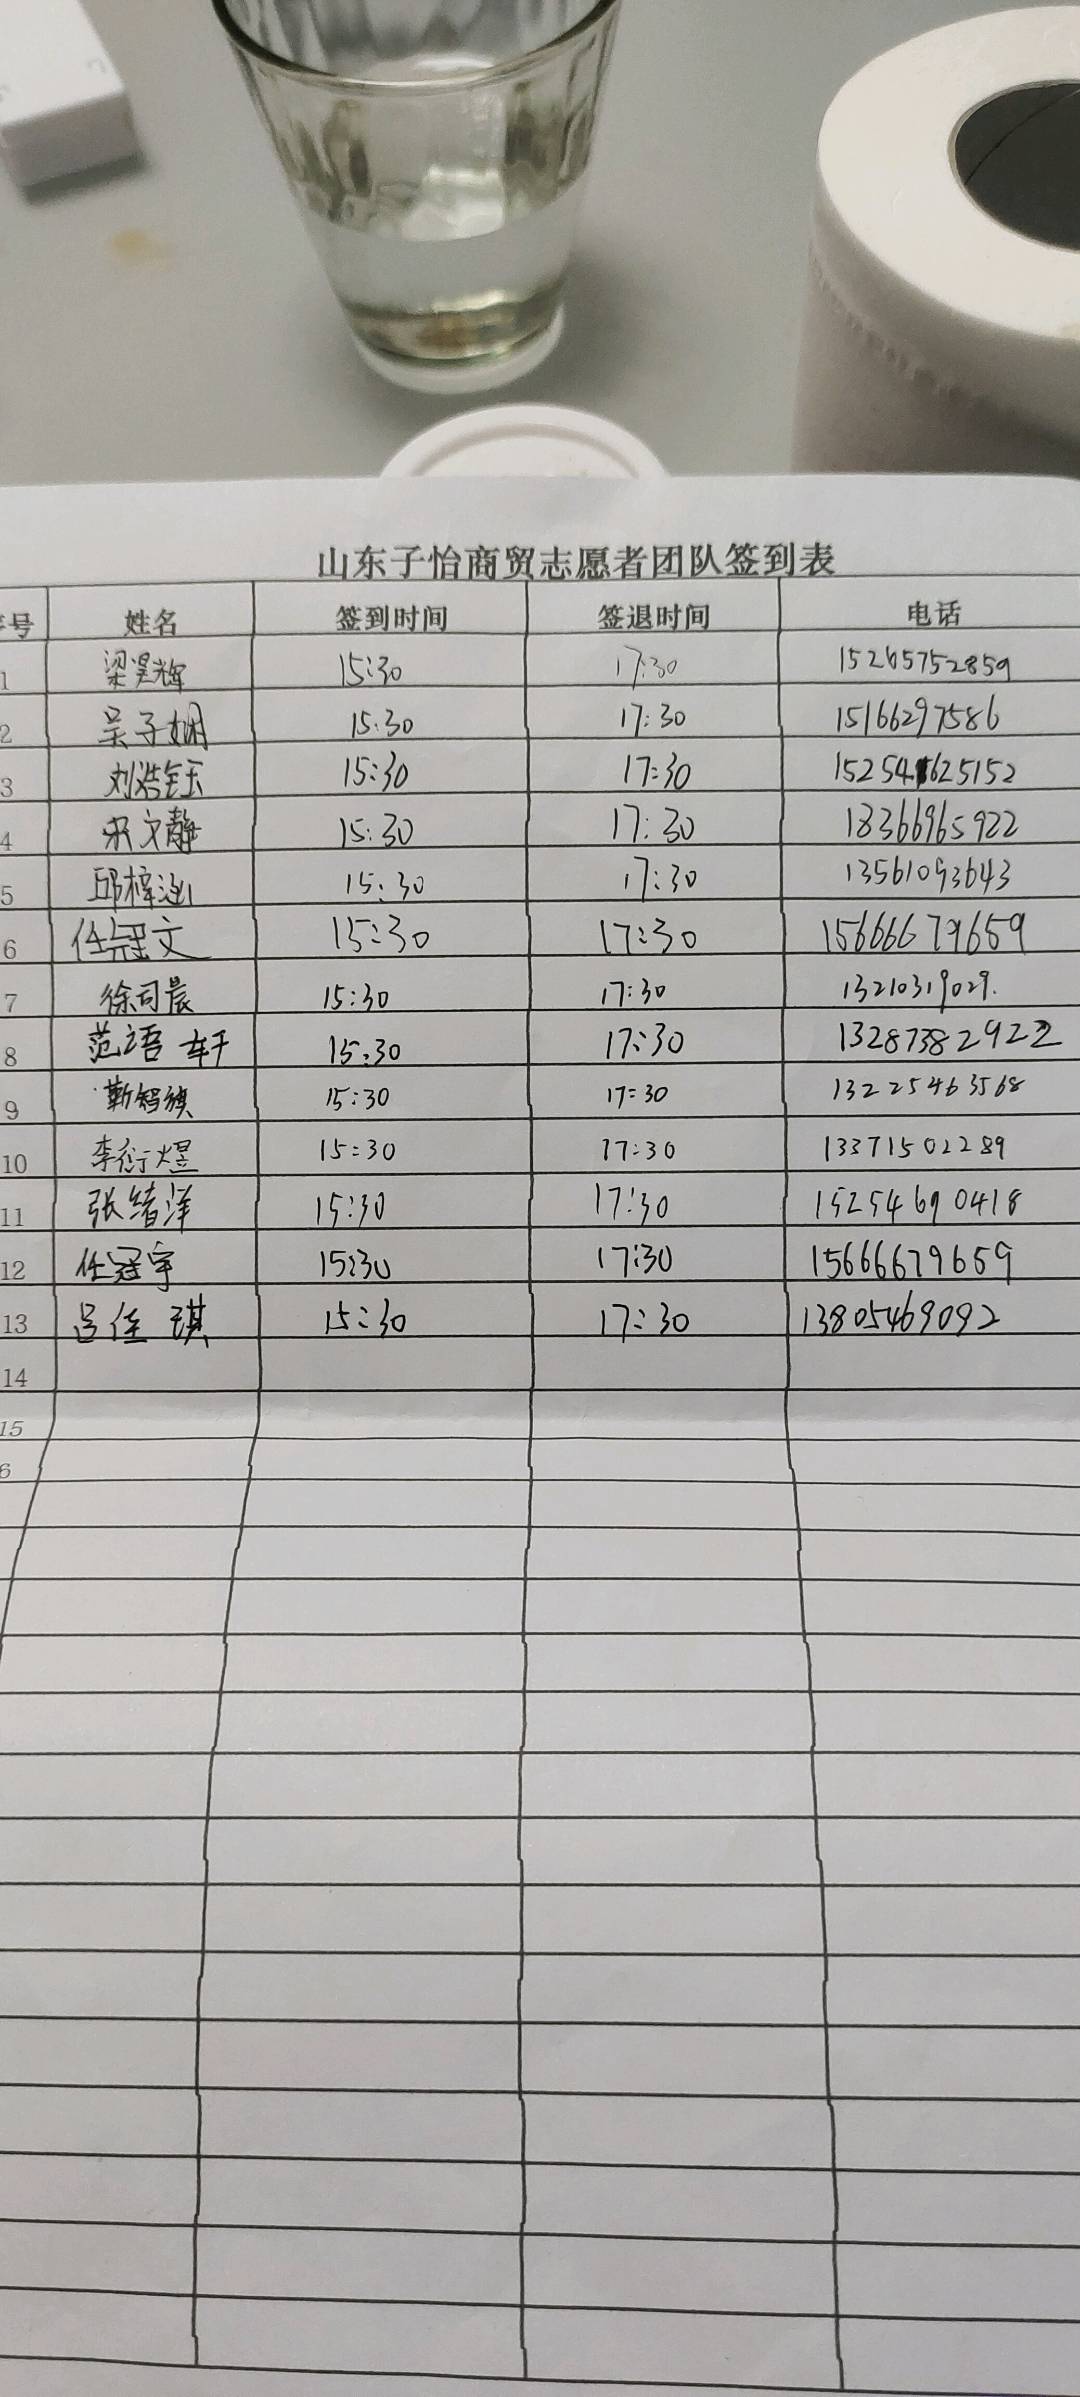 山东子怡商贸志愿者团队签到表
号 姓名 签到时间 签退时间 电话
1 梁昊辉 15:30 17:30 15265752859
2 吴子娴 15:30 17:30 15166297586
3 刘浩钰 15:30 17:30 15254625152
4 宋文静 15:30 17:30 18366965922
5 邱梓涵 15:30 17:30 13561093643
6 任冠文 15:30 17:30 15666679659
7 徐司晨 15:30 17:30 13210319029.
8 范语轩 15:30 17:30 13287382922
9 靳智旗 15:30 17:30 13225463568
10 李衍煜 15:30 17:30 13371502289
11 张绪洋 15:30 17:30 15254690418
12 任冠宇 15:30 17:30 15666679659
13 吕佳琪 15:30 17:30 13805469092
14
15
6